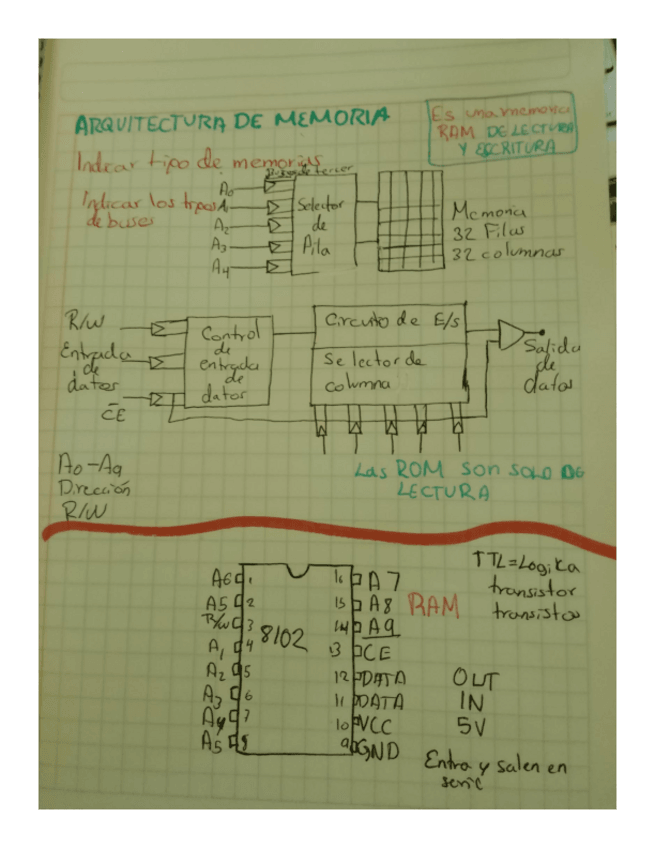 ARQUITECTURA DE MEMORIA
Es una memoria
RAM DE LECTURA
Y ESCRITURA
Indicar tipo de memorias
Indicar los tipos
de buses
A0
A1
A2
A3
A4
Selector
de
Pila
Memoria
32 Filas
32 columnas
R/W
Entrada
de
datos
CE
Control
de
entrada
de
datos
Circuito de E/s
Selector de
columna
Salida
de
datos
Ao-A9
Dirección
R/W
Las ROM son solo DE
LECTURA
TTL=Logika
transistor
transistor
RAM
8102
A6 1
A5 2
R/W 3
A1 4
A2 5
A3 6
A4 7
A5 8
16 A7
15 A8
14 A9
13 CE
12 DATA OUT
11 DATA IN
10 VCC 5V
9 GND
Entra y salen en
serie